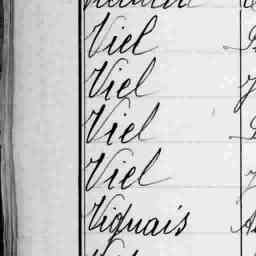 Viel
Viel
Viel
Viel
Viguais